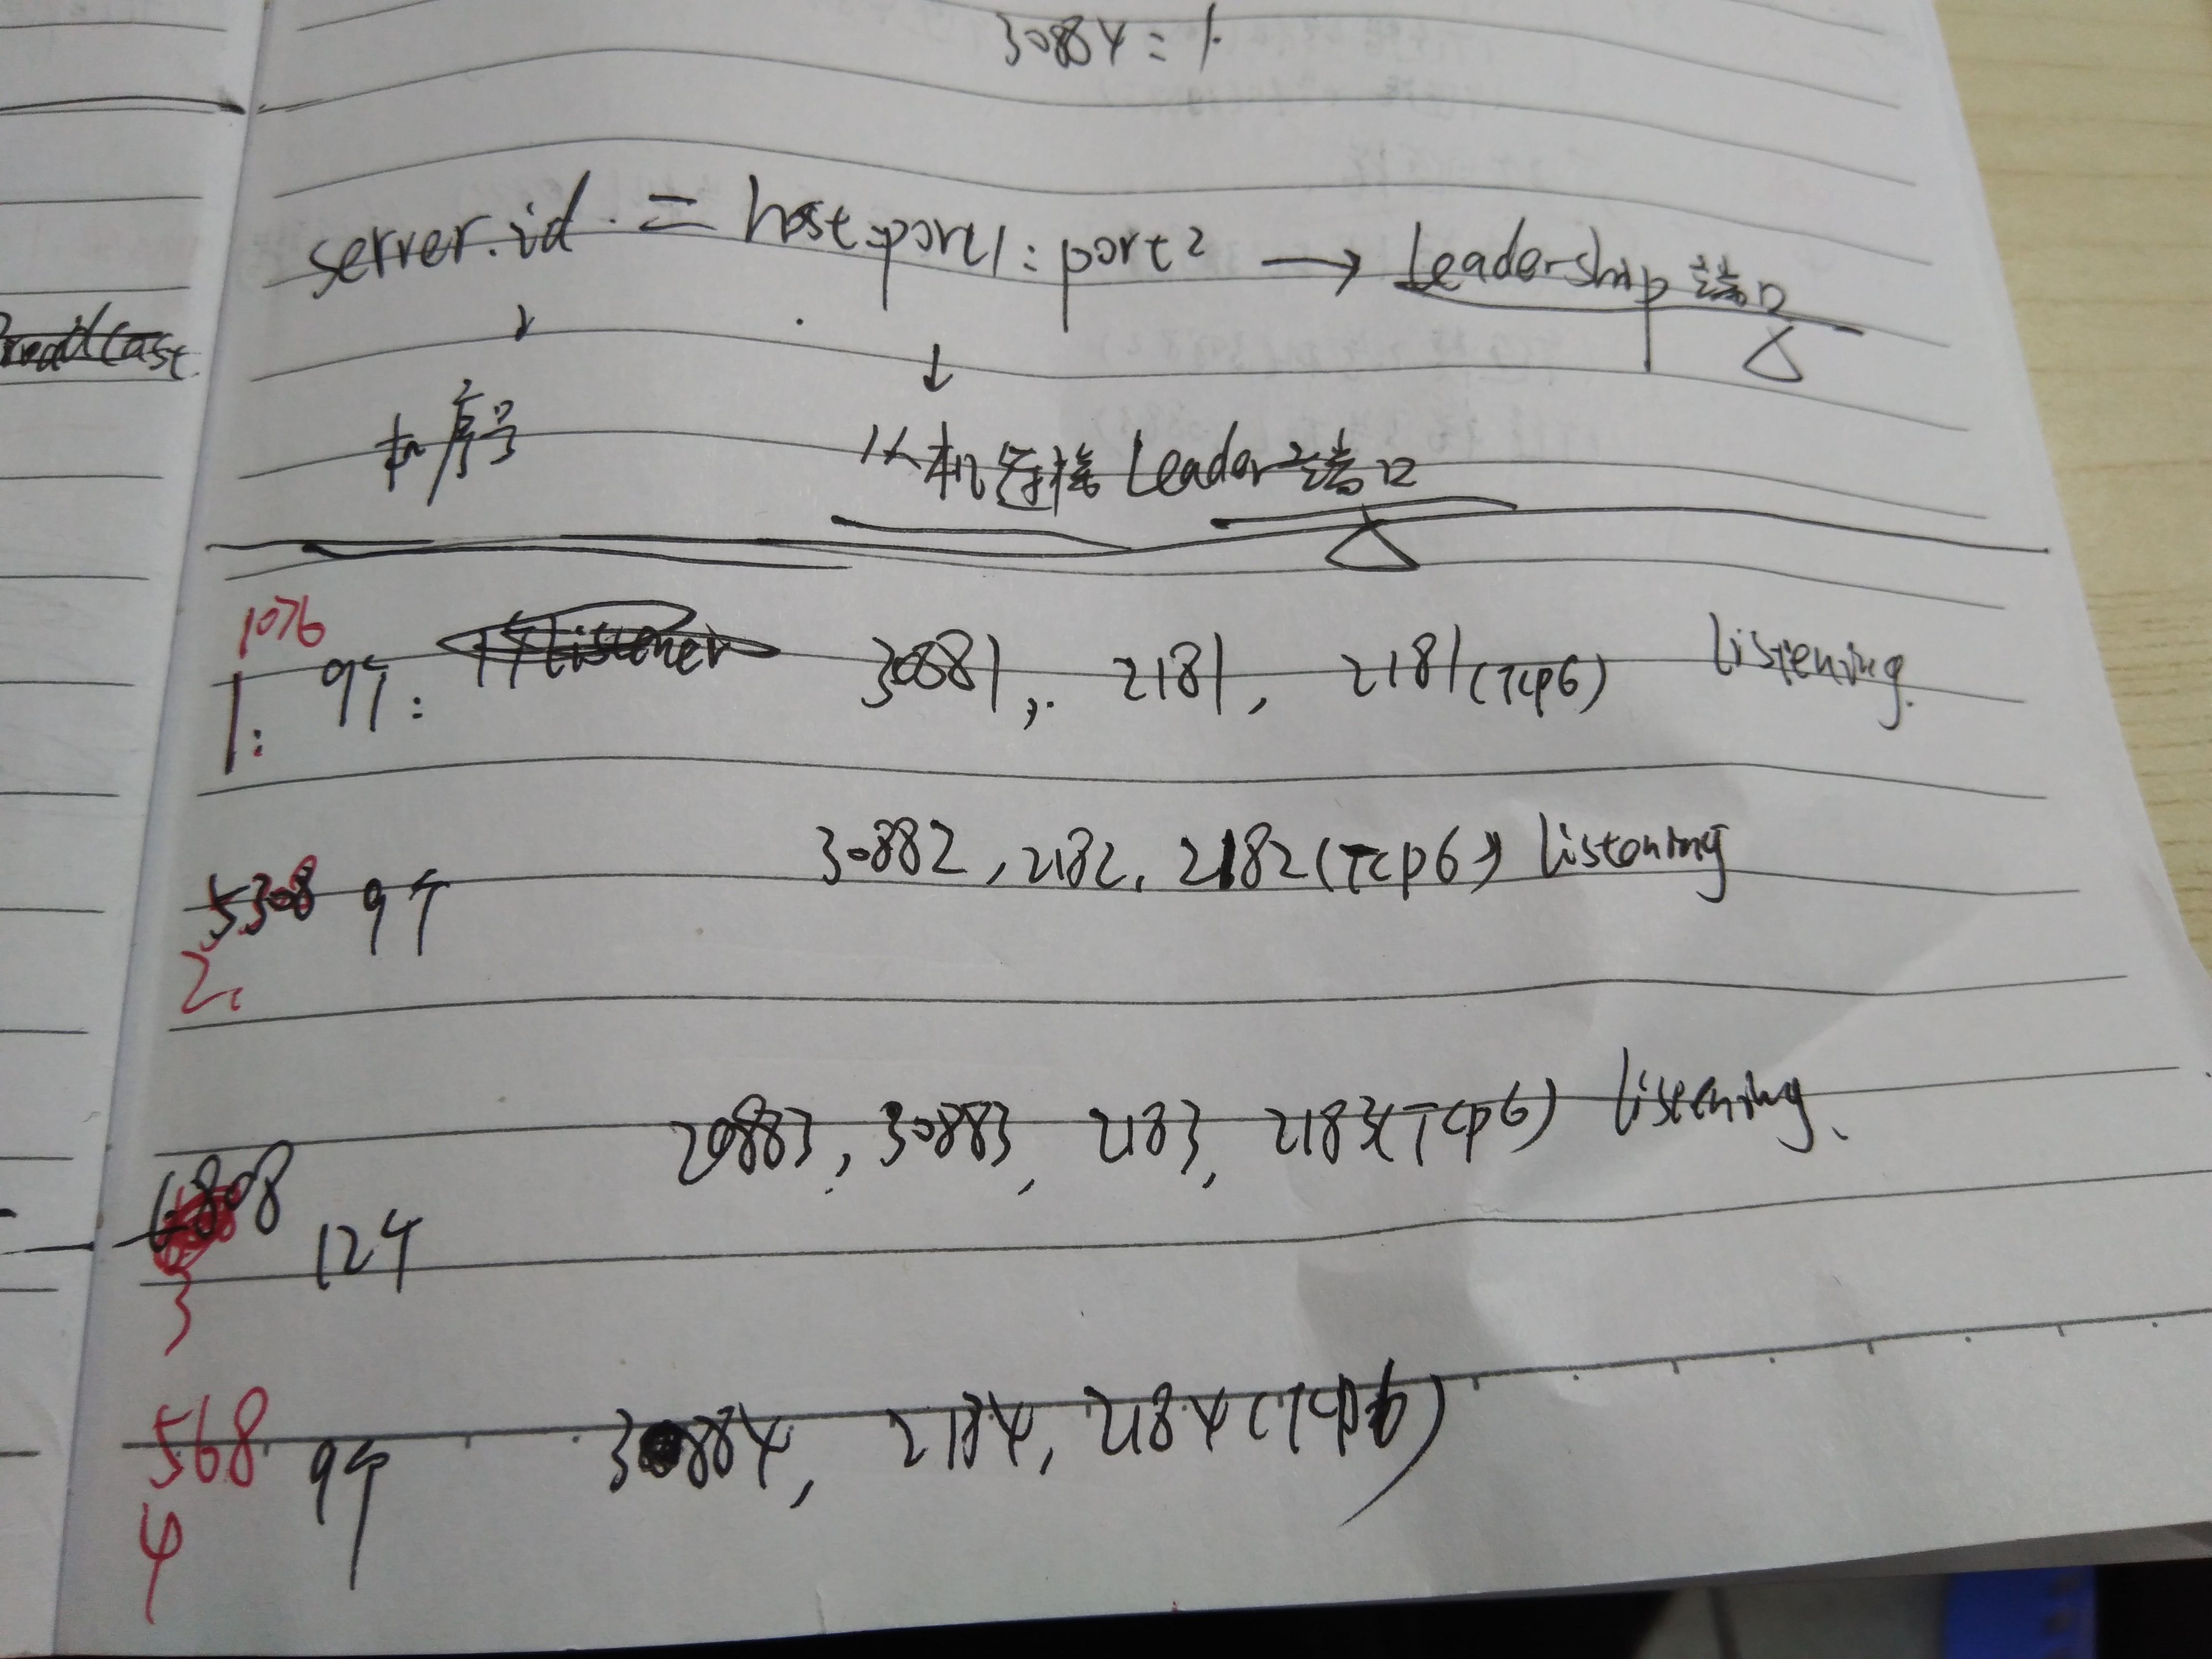 30884 = 1.
server.id = host:port1:port2 → Leadership 端口
机序号 从机连接Leader端口
1076
1: 97: 30881, 2181, 2181(Tcp6) listening.
30882, 2182, 2182(Tcp6) listening
5308 97
2.
20883, 30883, 2183, 2183(Tcp6) listening.
6808 124
3
568 97 30884, 2184, 2184(Tcp6)
4